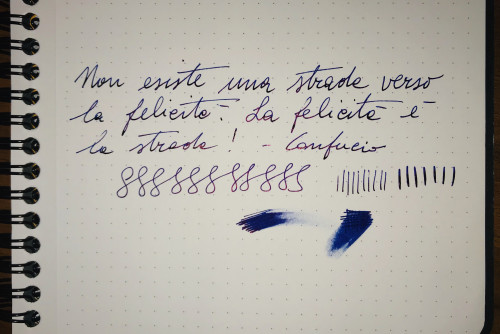 Non esiste una strada verso
la felicità. La felicità è
la strada! - Confucio